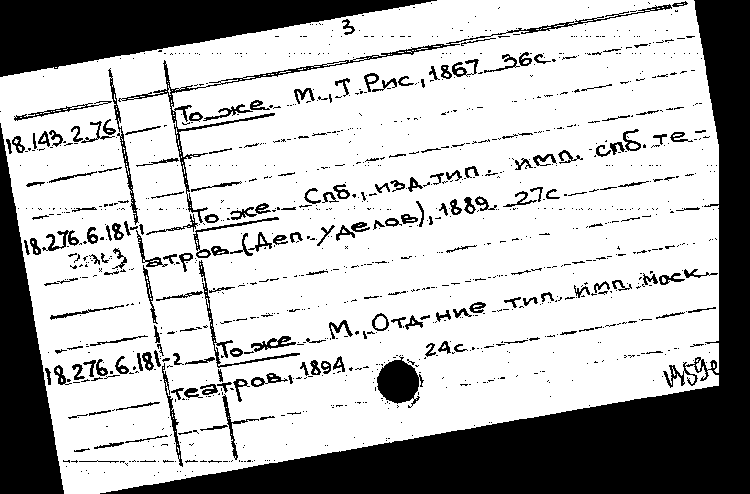 3
18.143.2.76 То же. М., Т. Рис, 1867. 36с.
18.276.6.181-1 То же. Спб., изд. тип. имп. спб. те-
атров (Деп. уделов), 1889. 27с.
18.276.6.181-2 То же. М., Отд-ние тип. имп. моск.
театров, 1894. 24с.